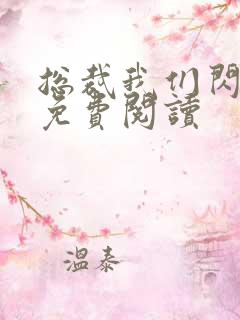 总裁我们閃
免費閱讀
温泰